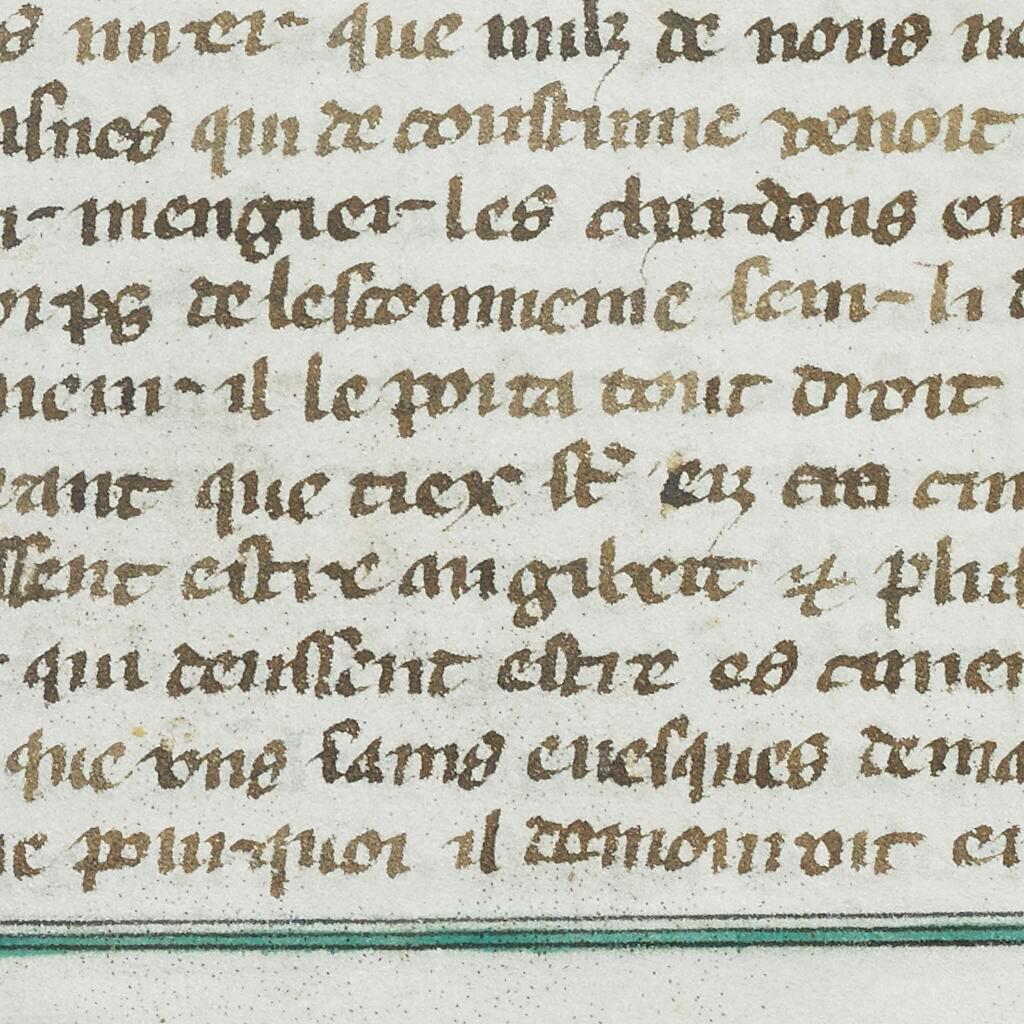 que nulz de nous
asnes qui de coustume venoit
mengier les chardons en
corps de lescommenie sem li
il le porta tout droit
que tiex st eu
ssent estre au gibeit ⁊ plus
qui deussent estre es cimen
que vng sains euesques dema
pourquoi il demouroit en